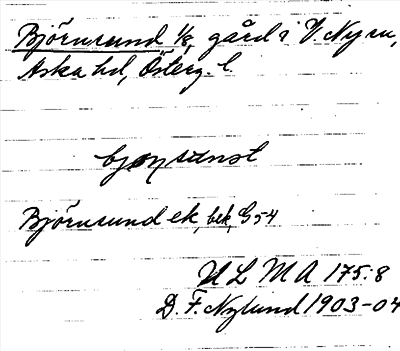 Björnsund 1/8, gård i V Ny sn,
Aska hd, Österg. l.
Björnsund ek, bek, G 54
U L M A 175:8
D. F. Nylund 1903-04